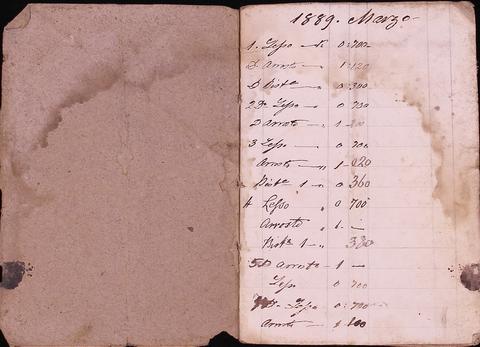 1889. Marzo
1. Lesso 0:700
D. Arrosto 1 120
D Bist.a 0 300
2 D.o Lesso 0 700
D Arrosto 1
3 Lesso 0 700
Arrosto 1 020
Bist.a 1 0 360
4 Lesso 0 700
Arrosto 1 —
Bist.a 1 380
5 D Arrosto 1 —
Lesso 0 700
D.o Lesso 0:700
Arrosto 1 100